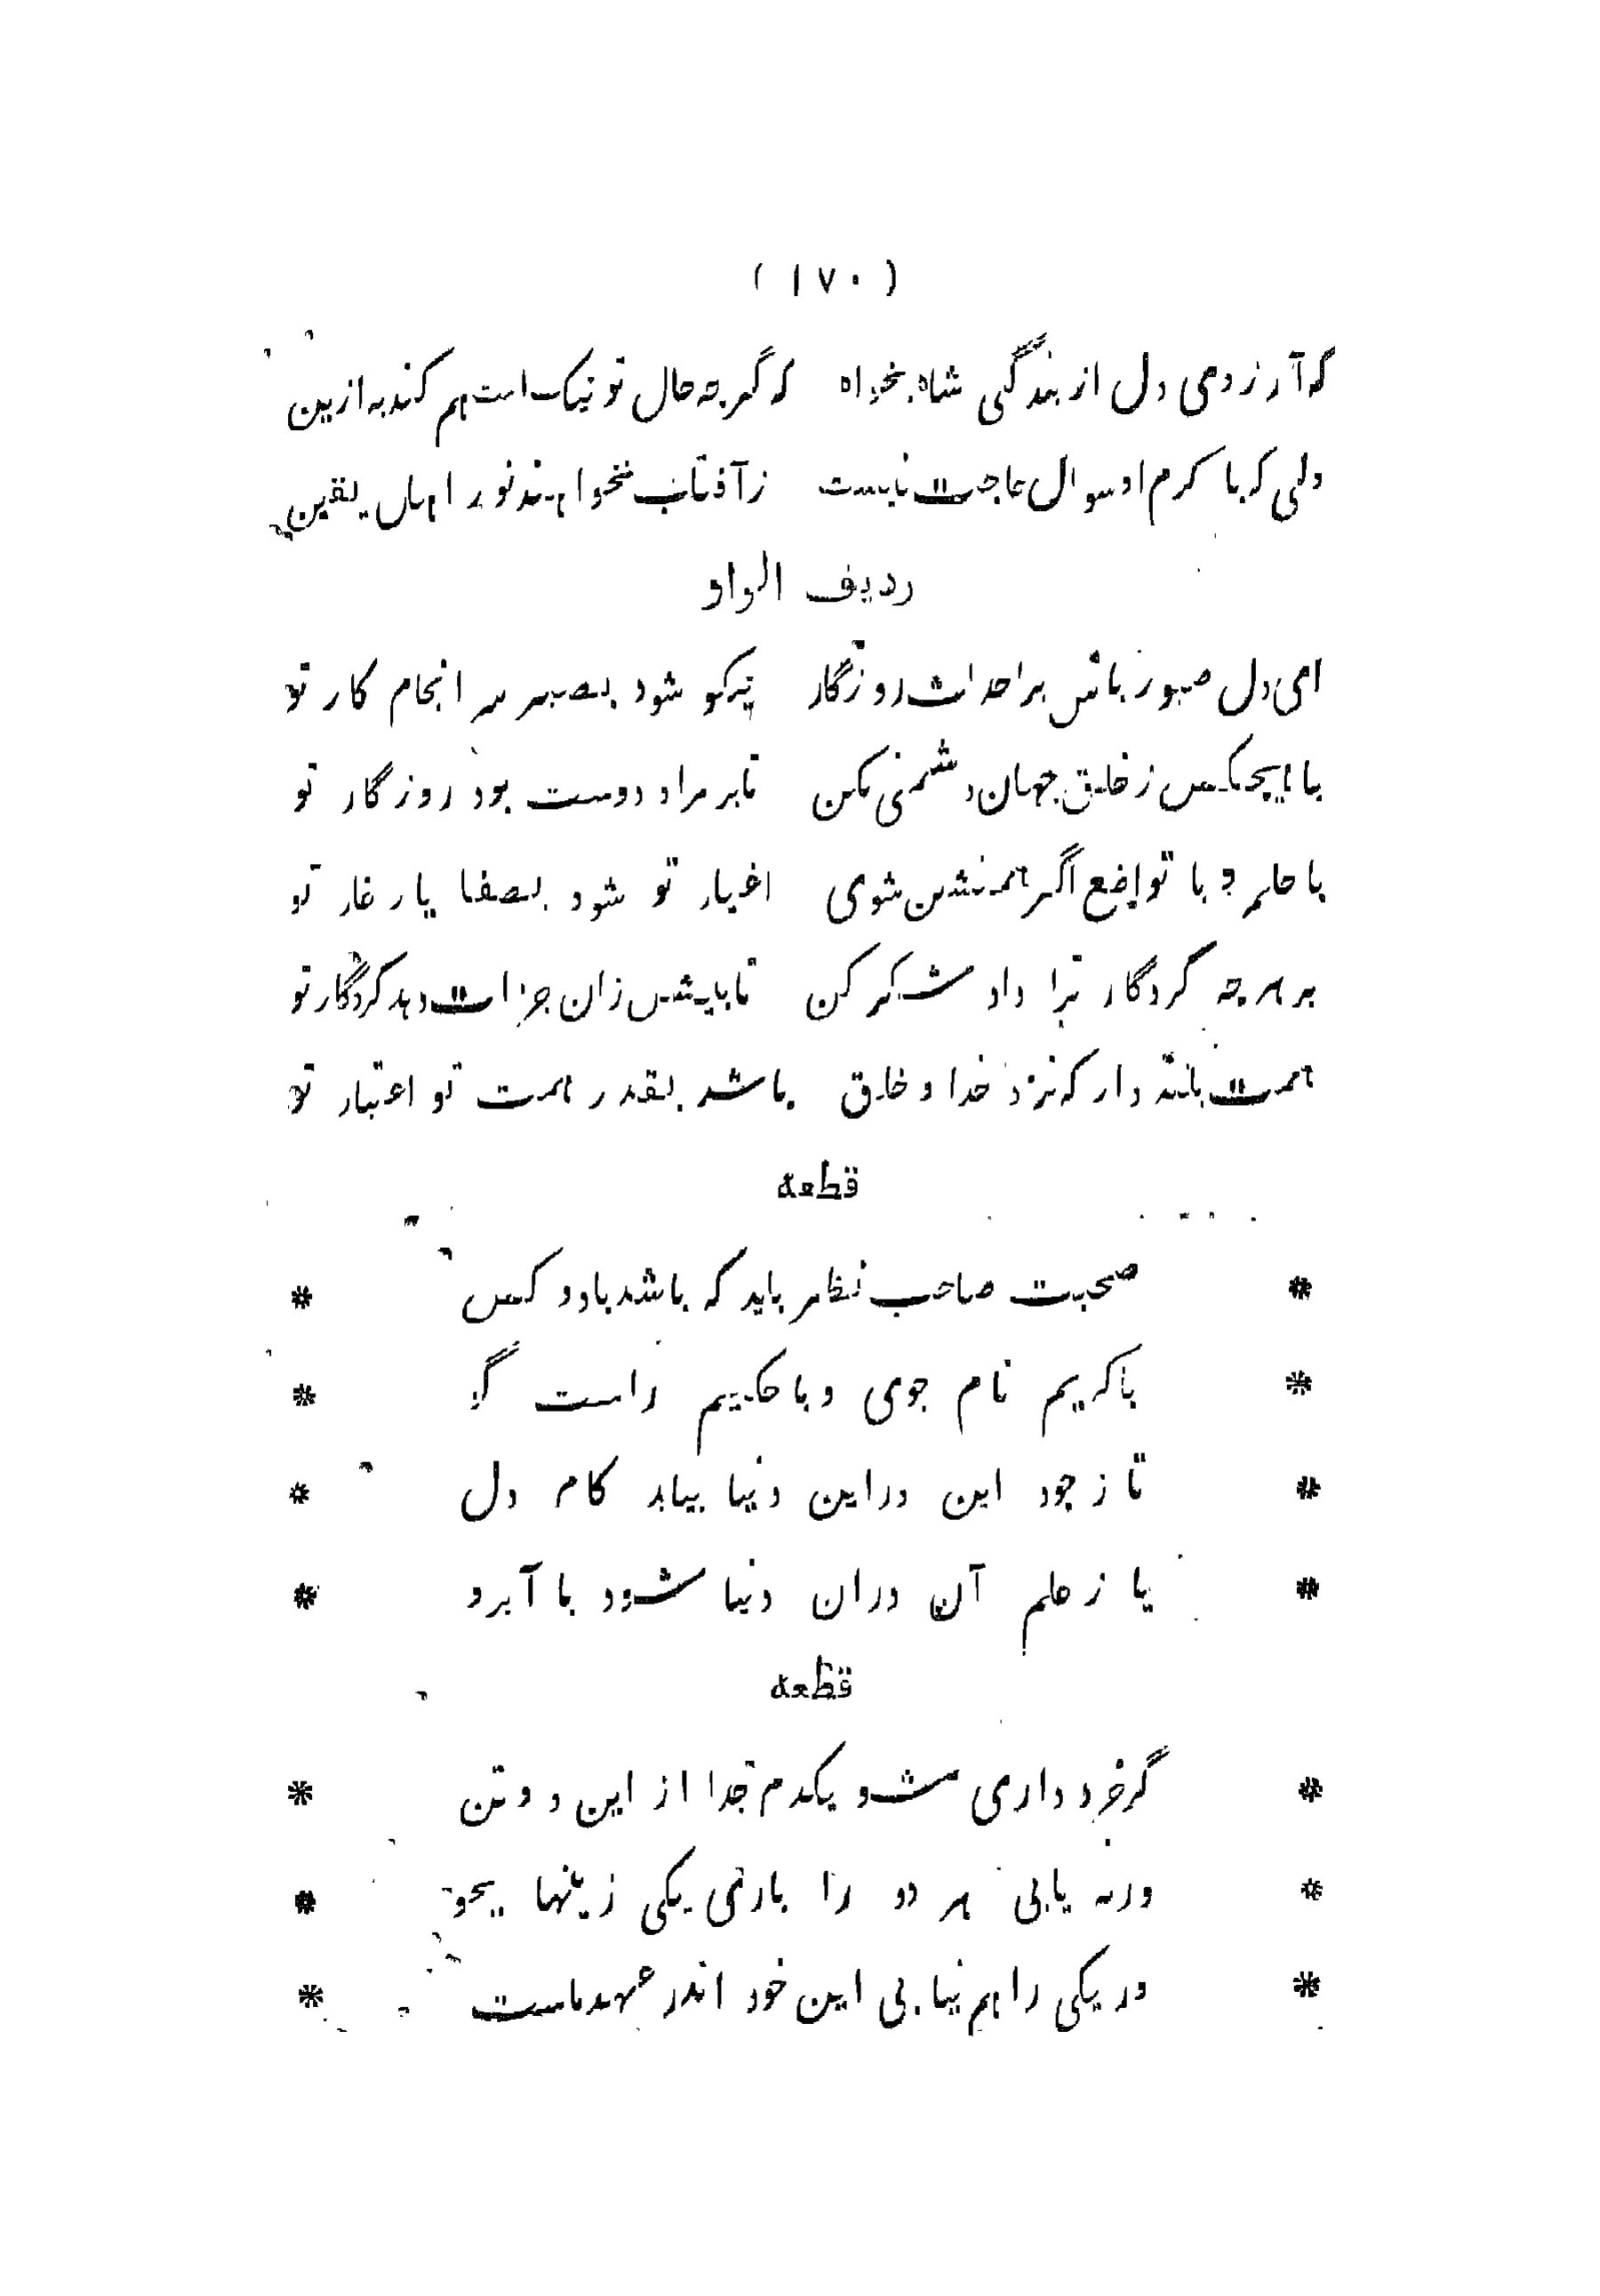 ( ۱۷۰ )
که آرزوی دل از بندگی شاه بخواه که گرچه حال تو نیک است هم کند به ازین
ولی که با کرم او سوال حاجت نیست ز آفتاب نخواهند نور اهل یقین
ردیف الواو
ای دل صبور باش بر احداث روزگار نیکو شود بصبر سر انجام کار تو
با هیچکس ز خلق جهان دشمنی مکن تا بر مراد دوست بود روزگار تو
با حلم و با تواضع اگر همنشین شوی اغیار تو شود بصفا یار غار تو
بر هرچه کردگار ترا داد شکر کن تا بیش زان جزات دهد کردگار تو
همت بلند دار که نزد خدا و خلق باشد بقدر همت تو اعتبار تو
قطعه
* صحبت صاحب نظر باید که باشد با دو کس *
* با کریم نام جوی و با حکیم راست گو *
* تا ز جود این دراین دنیا بیابد کام دل *
* یا ز علم آن دران دنیا شود با آبرو *
قطعه
* گر خرد داری مشو یکدم جدا از این دو تن *
* ورنه یابی هر دو را باری یکی زینها بجو *
* ور یکی را هم نیابی این خود اندر عهد ماست *